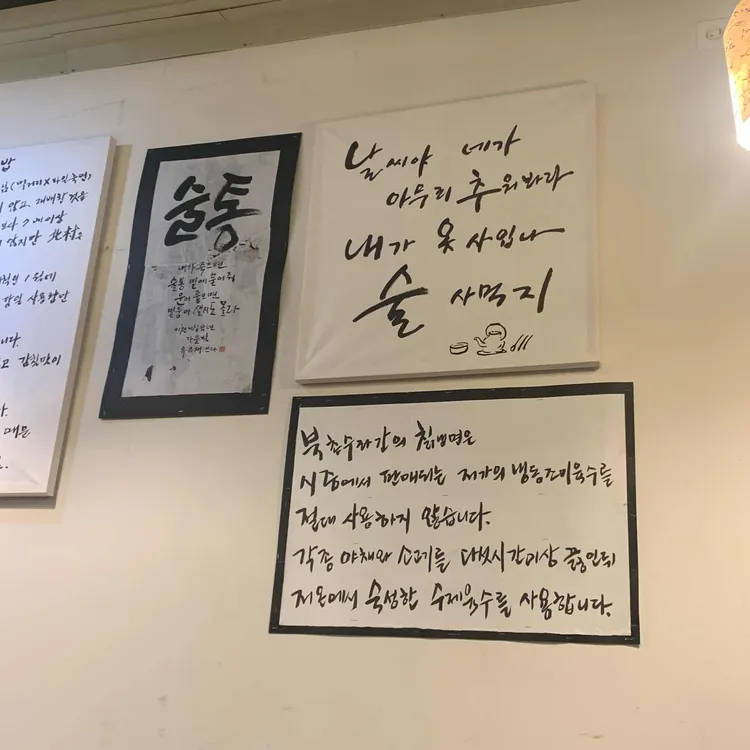 밥
지 않고, 재배한 것을
지 않지만 北村은
니다.
고 감칠맛이
다.
때문
술통
내가 죽으면
술통 밑에 묻어줘
운이 좋으면
밑둥이 샐지도 몰라
날씨야 네가
아무리 추워봐라
내가 옷 사입나
술 사먹지
북촌수라간의 칡냉면은
시중에서 판매되는 저가의 냉동조미육수를
절대 사용하지 않습니다.
각종 야채와 소고기를 다섯시간이상 끓인뒤
저온에서 숙성한 수제육수를 사용합니다.